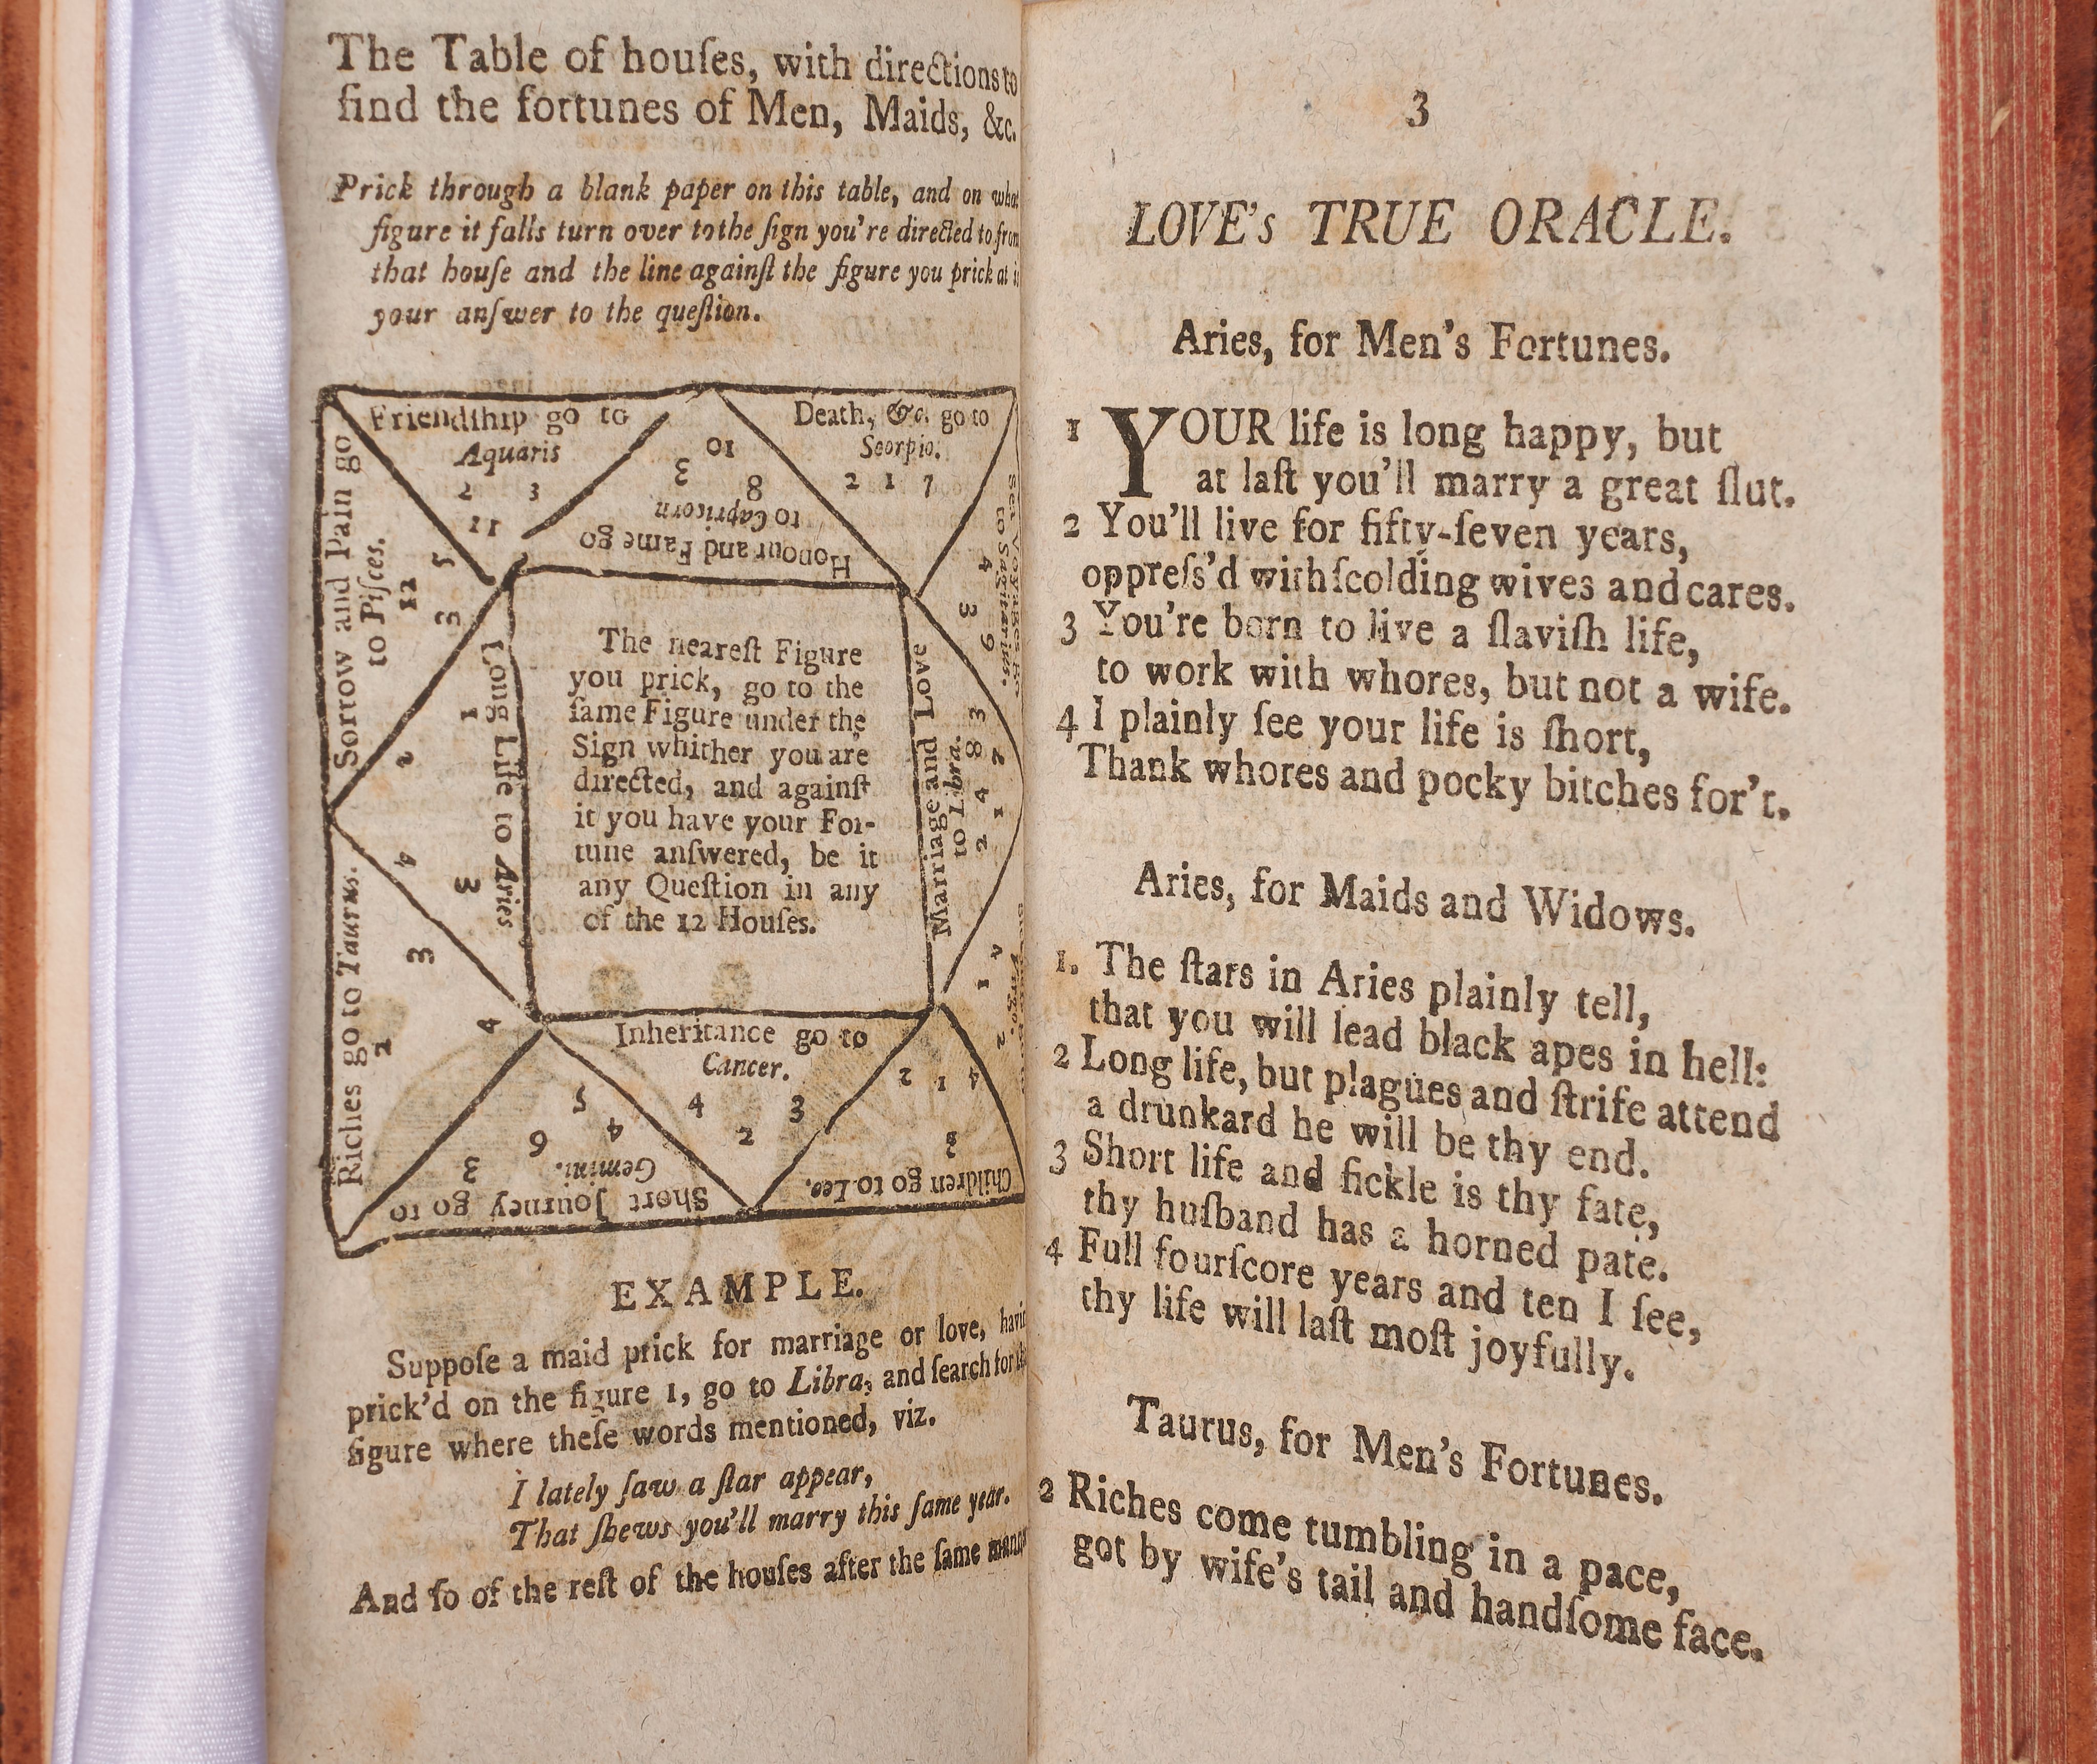 The Table of houſes, with directions to
find the fortunes of Men, Maids, &c.
Prick through a blank paper on this table, and on what
figure it falls turn over to the ſign you're directed to from
that houſe and the line againſt the figure you prick at is
your anſwer to the queſtion.
Friendſhip go to
Aquaris
2 3
11
10
3
8
Honour and Fame go
to Capricorn
Death, &c. go to
Scorpio.
2 1 7
Sorrow and Pain go
to Piſces.
5
12
3
2
to Sagitarius.
4
3
9
Long Life to Aries
1
4
3
The neareſt Figure
you prick, go to the
ſame Figure under the
Sign whither you are
directed, and againſt
it you have your For-
tune anſwered, be it
any Queſtion in any
of the 12 Houſes.
Marriage and Love
to Libra.
3
8 2
4 1
2
Riches go to Taurus.
3
2
4
4
1
2
Inheritance go to
Cancer.
4 3
2
Short Journey go to
Gemini.
5
4
6
3
Children go to Leo.
2 1 4
2
EXAMPLE.
Suppoſe a maid prick for marriage or love,
prick'd on the figure 1, go to Libra, and ſearch for
figure where theſe words mentioned, viz.
I lately ſaw a ſtar appear,
That ſhews you'll marry this ſame year.
And ſo of the reſt of the houſes after the ſame
3
LOVE's TRUE ORACLE.
Aries, for Men's Fortunes.
1 YOUR life is long happy, but
at laſt you'll marry a great ſlut.
2 You'll live for fifty-ſeven years,
oppreſs'd with ſcolding wives and cares.
3 You're born to live a ſlaviſh life,
to work with whores, but not a wife.
4 I plainly ſee your life is ſhort,
Thank whores and pocky bitches for't.
Aries, for Maids and Widows.
1. The ſtars in Aries plainly tell,
that you will lead black apes in hell:
2 Long life, but plagues and ſtrife attend
a drunkard he will be thy end.
3 Short life and fickle is thy fate,
thy huſband has a horned pate.
4 Full fourſcore years and ten I ſee,
thy life will laſt moſt joyfully.
Taurus, for Men's Fortunes.
2 Riches come tumbling in a pace,
got by wife's tail and handſome face.